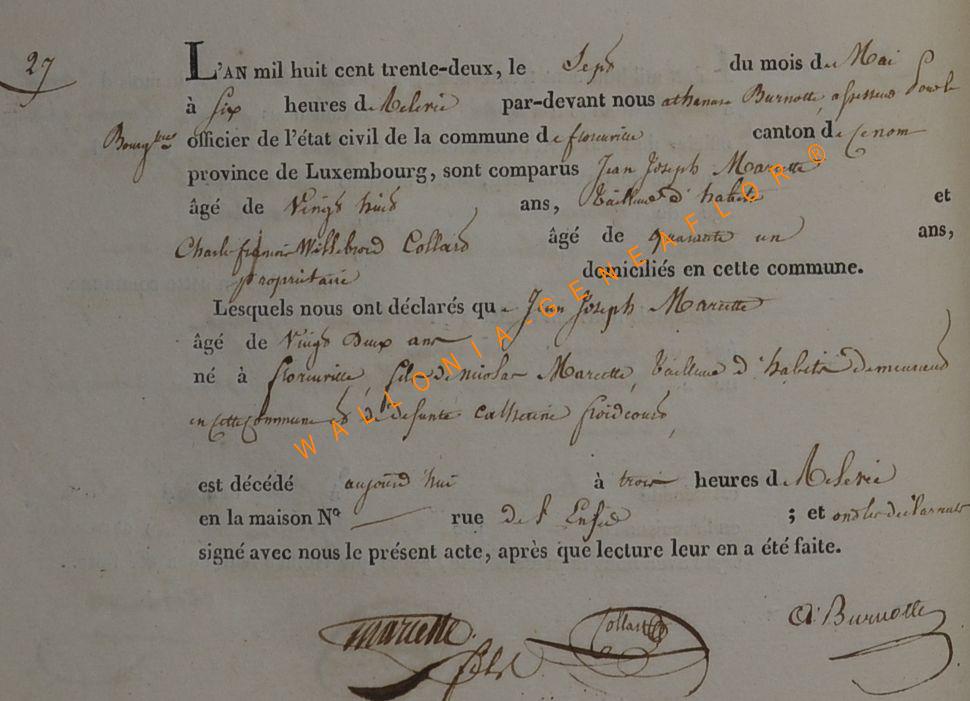 27
L'AN mil huit cent trente-deux, le Sept du mois de Mai
à six heures de Relevée par-devant nous athanase Burnotte, assesseur Pour le
Bourgtre officier de l'état civil de la commune de florenville canton de
province de Luxembourg, sont comparus Jean Joseph Marcette
âgé de Vingt huit ans, tailleur d'habits et
Charle françois Willebrord Collard âgé de quarante un ans,
propriétaire domiciliés en cette commune.
Lesquels nous ont déclarés que Jean Joseph Marcette
âgé de Vingt Deux ans
né à florenville, fils de nicolas Marcette, tailleur d'habits demeurant
en cette commune et de defunte catherine froidcourt,
est décédé aujourd'hui à trois heures de Relevée
en la maison N° — rue de l'Enfer ; et ont les déclarants
signé avec nous le présent acte, après que lecture leur en a été faite.
marcette Collard A Burnotte
fils
WALLONIA-GENEAFLOR ®